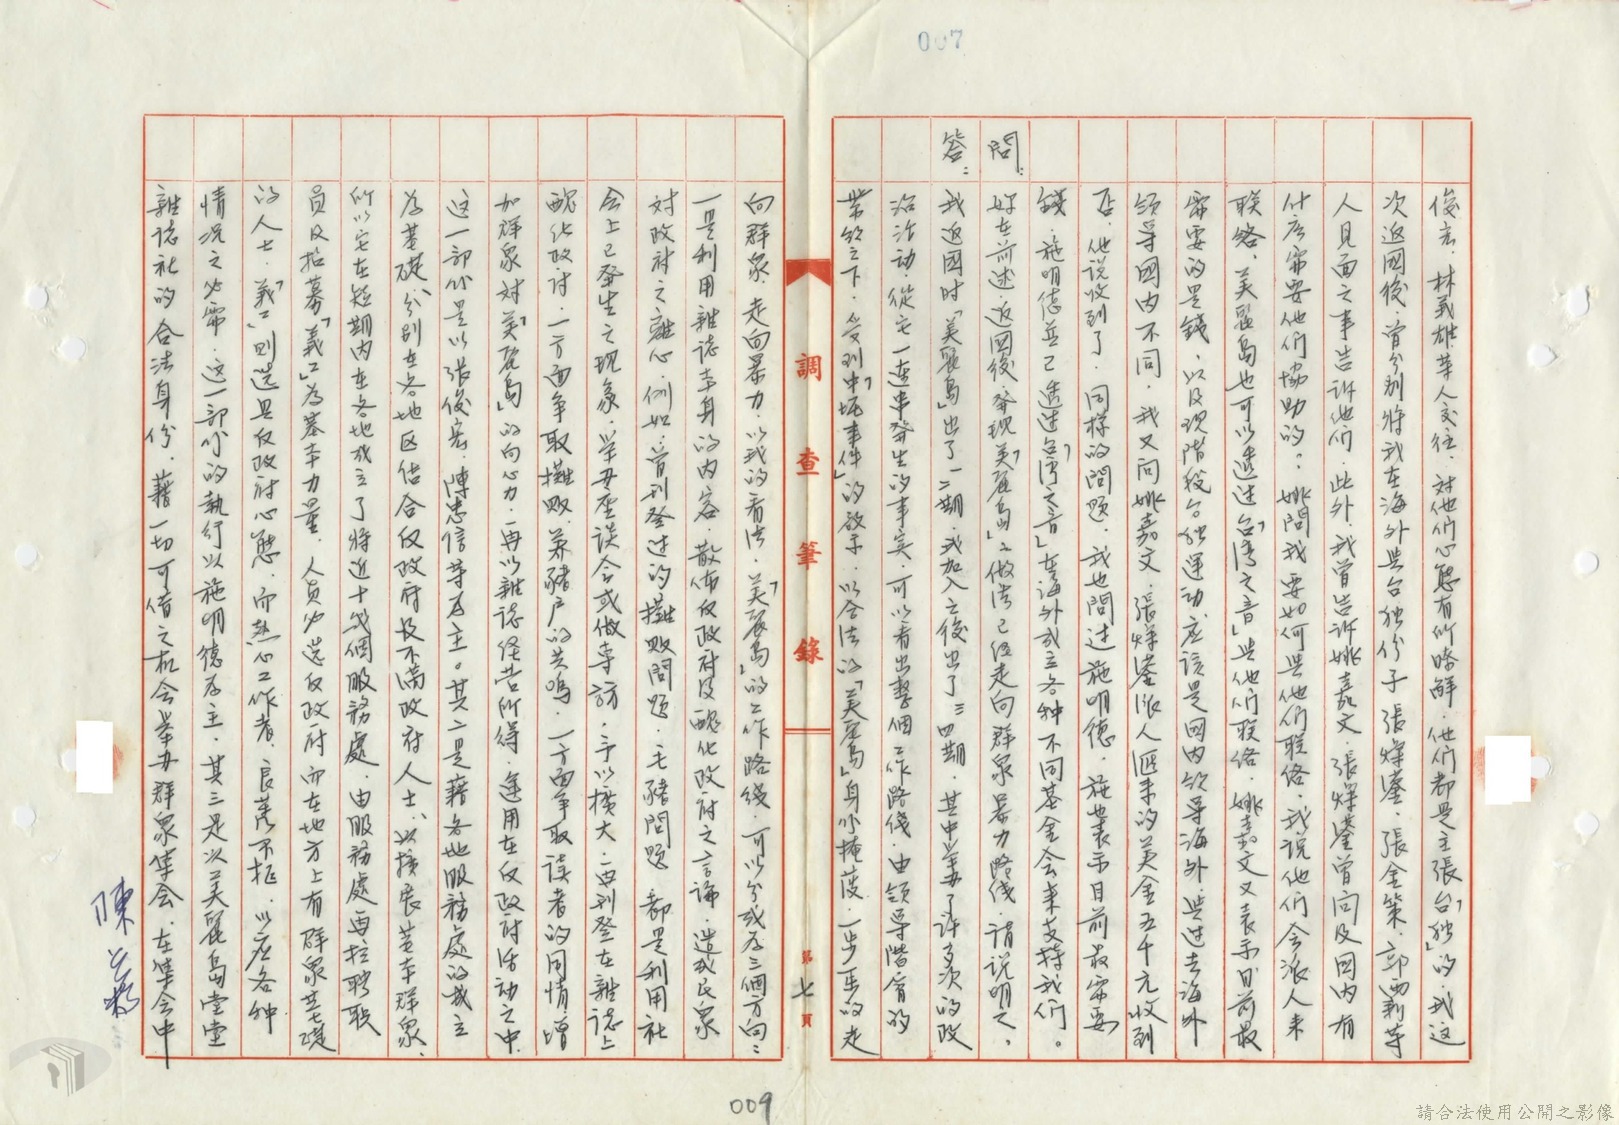 007
俊宏、林義雄等人交往，对他們心態有所瞭解，他們都是主張「台独」的，我这
次返國後，曾分别將我在海外与台独份子張燦鍙、張金策、郭雨新等
人見面之事告訴他們，此外，我曾告訴姚嘉文，張燦鍙曾问及國内有
什庅需要他們協助的？姚問我要如何与他們联络，我説他們会派人来
联络，美麗島也可以透过「台湾之音」与他們联络，姚嘉文又表示目前最
需要的是錢，以及現階段台独運动，应該是國内領导海外，与过去海外
領导國内不同，我又问姚嘉文，張燦鍙派人匯来的美金五千元收到
否，他説收到了，同樣的問題，我也問过施明德，施也表示目前最需要
錢，施明德並已透过「台湾之音」在海外成立各种不同基金会来支持我們。
問：妳在前述，返國後，發現「美麗島」之做法已經走向群衆暴力路线，請説明之。
答：我返國时「美麗島」出了一、二期，我加入之後出了三、四期，其中舉办了許多次的政
治活动，從它一連串發生的事实，可以看出整個工作路线，由領导階層的
策劃之下，受到「中壢事件」的啟示，以合法的「美麗島」身份掩護，一步步的走
調查筆錄
第七頁
向群衆，走向暴力，以我的看法，「美麗島」的工作路线，可以分成为三個方向：
一是利用雜誌本身的内容，散佈反政府及醜化政府之言論，造成民衆
对政府之離心，例如，曾刊登过的攤販問題，毛豬問題，都是利用社
会上已發生之現象，举办座談会或做專訪，予以擴大，再刊登在雜誌上
醜化政府，一方面争取攤販、养豬户的共鳴，一方面争取读者的同情，增
加群衆对「美麗島」的向心力，再以雜誌经营所得，運用在反政府活动之中，
这一部份是以張俊宏、陳忠信等为主。其二是藉各地服務處的成立
为基礎，分别在各地区结合反政府及不滿政府人士，以擴展基本群衆，
所以它在短期内在各地成立了將近十幾個服務處，由服務處再拉聘職
員及招募「義工」为基本力量，人員必选反政府而在地方上有群衆基礎
的人士，「義工」則选具反政府心態，而熱心工作者，良莠不拒，以应各种
情况之必需，这一部份的執行以施明德为主，其三是以美麗島堂堂
雜誌社的合法身份，藉一切可借之机会举办群衆集会，在集会中
陳
009
請合法使用公開之影像